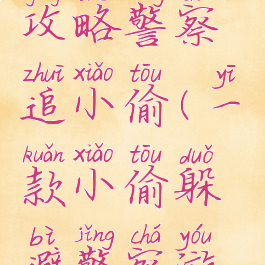 攻略警察
zhuī xiǎo tōu yī
追小偷(一
kuǎn xiǎo tōu duǒ
款小偷躲
bì jǐng chá yóu
避警察游